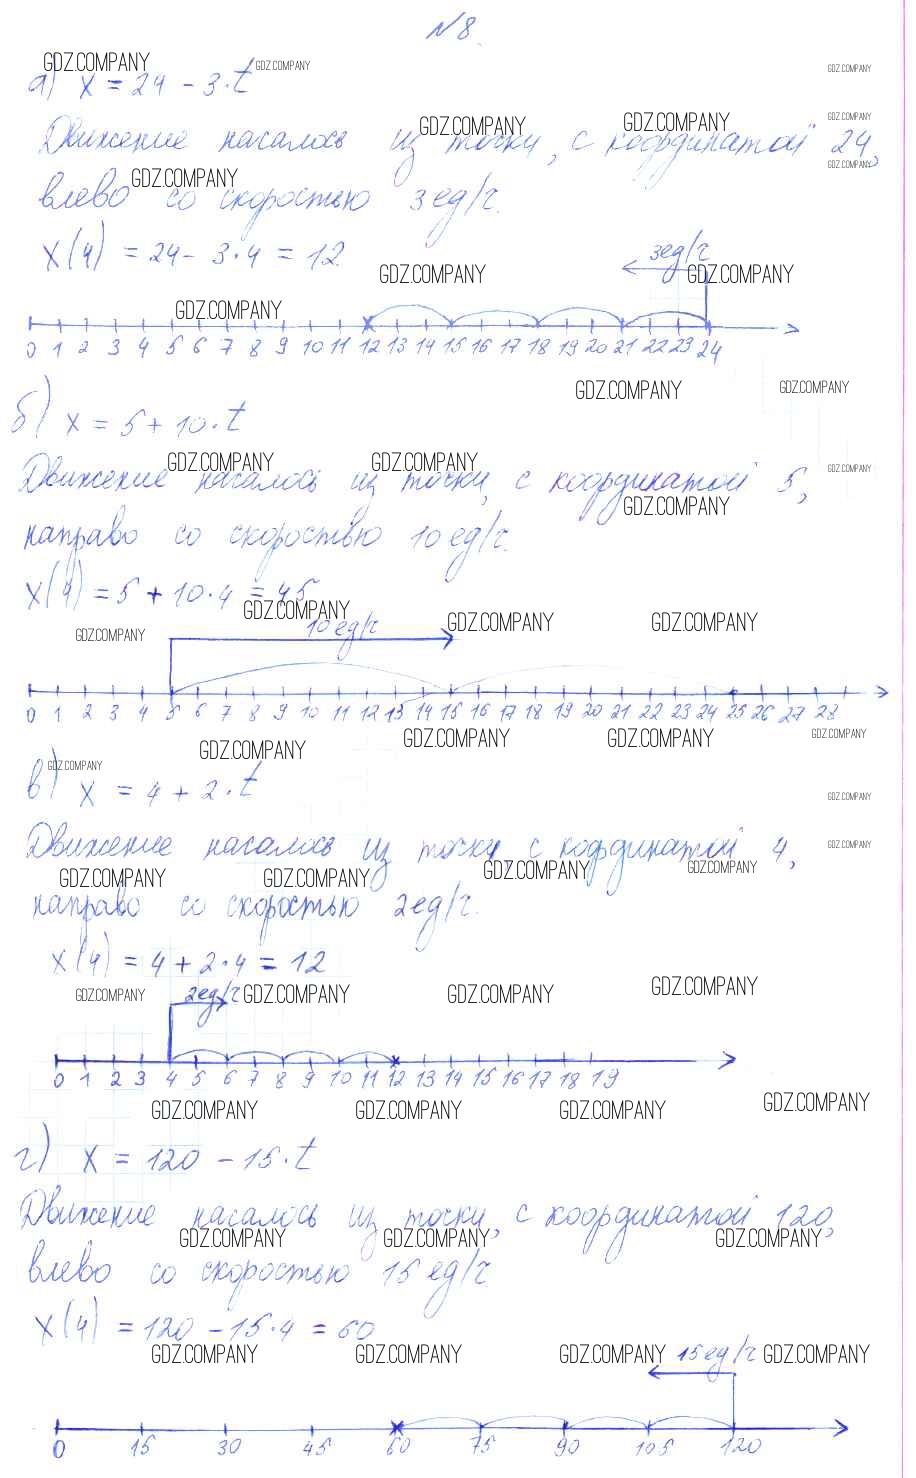 №8.
GDZ.COMPANY GDZ.COMPANY GDZ.COMPANY
а) x = 24 - 3·t
GDZ.COMPANY GDZ.COMPANY GDZ.COMPANY
Движение началось из точки, с координатой 24,
GDZ.COMPANY GDZ.COMPANY
влево со скоростью 3ед/ч.
x(4) = 24 - 3·4 = 12.
3ед/ч
GDZ.COMPANY GDZ.COMPANY
GDZ.COMPANY
0 1 2 3 4 5 6 7 8 9 10 11 12 13 14 15 16 17 18 19 20 21 22 23 24
GDZ.COMPANY GDZ.COMPANY
б) x = 5 + 10·t
GDZ.COMPANY GDZ.COMPANY GDZ.COMPANY
Движение началось из точки, с координатой 5,
GDZ.COMPANY
направо со скоростью 10ед/ч.
x(4) = 5 + 10·4 = 45
GDZ.COMPANY GDZ.COMPANY GDZ.COMPANY
10ед/ч
GDZ.COMPANY
0 1 2 3 4 5 6 7 8 9 10 11 12 13 14 15 16 17 18 19 20 21 22 23 24 25 26 27 28
GDZ.COMPANY GDZ.COMPANY GDZ.COMPANY GDZ.COMPANY
GDZ.COMPANY
в) x = 4 + 2·t
GDZ.COMPANY
Движение началось из точки, с кординатой 4,
GDZ.COMPANY
GDZ.COMPANY GDZ.COMPANY GDZ.COMPANY GDZ.COMPANY
направо со скоростью 2ед/ч.
x(4) = 4 + 2·4 = 12
2ед/ч
GDZ.COMPANY GDZ.COMPANY GDZ.COMPANY GDZ.COMPANY
0 1 2 3 4 5 6 7 8 9 10 11 12 13 14 15 16 17 18 19
GDZ.COMPANY GDZ.COMPANY GDZ.COMPANY GDZ.COMPANY
г) x = 120 - 15·t
Движение началось из точки, с координатой 120,
GDZ.COMPANY GDZ.COMPANY GDZ.COMPANY
влево со скоростью 15 ед/ч
x(4) = 120 - 15·4 = 60
GDZ.COMPANY GDZ.COMPANY GDZ.COMPANY 15ед/ч GDZ.COMPANY
0 15 30 45 60 75 90 105 120